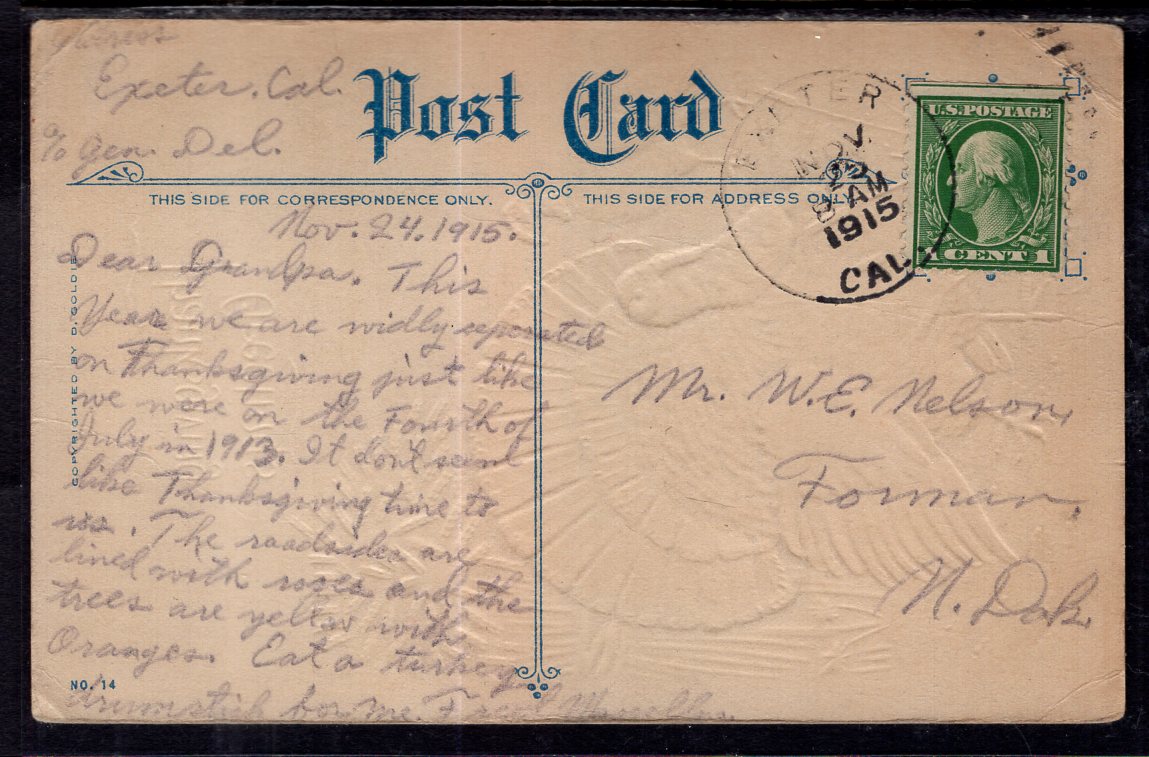 Address
Exeter, Cal.
c/o Gen. Del.
Post Card
THIS SIDE FOR CORRESPONDENCE ONLY.
THIS SIDE FOR ADDRESS ONLY.
EXETER
NOV.
8 AM
1915
CAL.
U.S. POSTAGE
1 CENT 1
COPYRIGHTED BY D. GOLDIE
Nov. 24. 1915.
Dear Grandpa. This
Year we are widly seperated
on Thanksgiving just like
we were on the Fourth of
July in 1913. It don't seem
like Thanksgiving time to
us. The roadsides are
lined with roses and the
trees are yellow with
Oranges. Eat a turkey
drumstick for me.
NO. 14
Mr. W.E. Nelson,
Forman,
N. Dak.